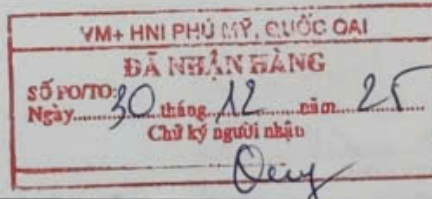 VM+ HNI PHÚ MỸ, QUỐC OAI
ĐÃ NHẬN HÀNG
SỐ PO/TO:
Ngày 30 tháng 12 năm 25
Chữ ký người nhận